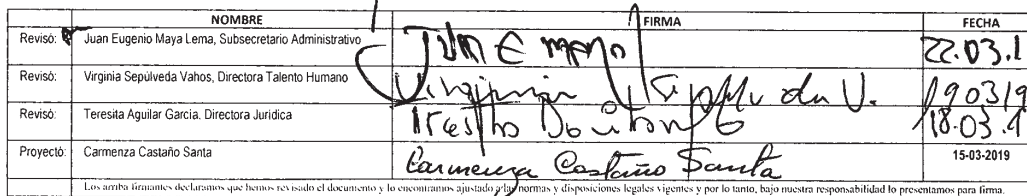 NOMBRE FIRMA FECHA
Revisó: Juan Eugenio Maya Lema, Subsecretario Administrativo Juan E Maya 22.03.1
Revisó: Virginia Sepúlveda Vahos, Directora Talento Humano Virginia Sepúlveda V. 190319
Revisó: Teresita Aguilar Garcia. Directora Juridica 18.03.1
Proyectó: Carmenza Castaño Santa Carmenza Castaño Santa 15-03-2019
Los arriba firmantes declaramos que hemos revisado el documento y lo encontramos ajustado a las normas y disposiciones legales vigentes y por lo tanto, bajo nuestra responsabilidad lo presentamos para firma.